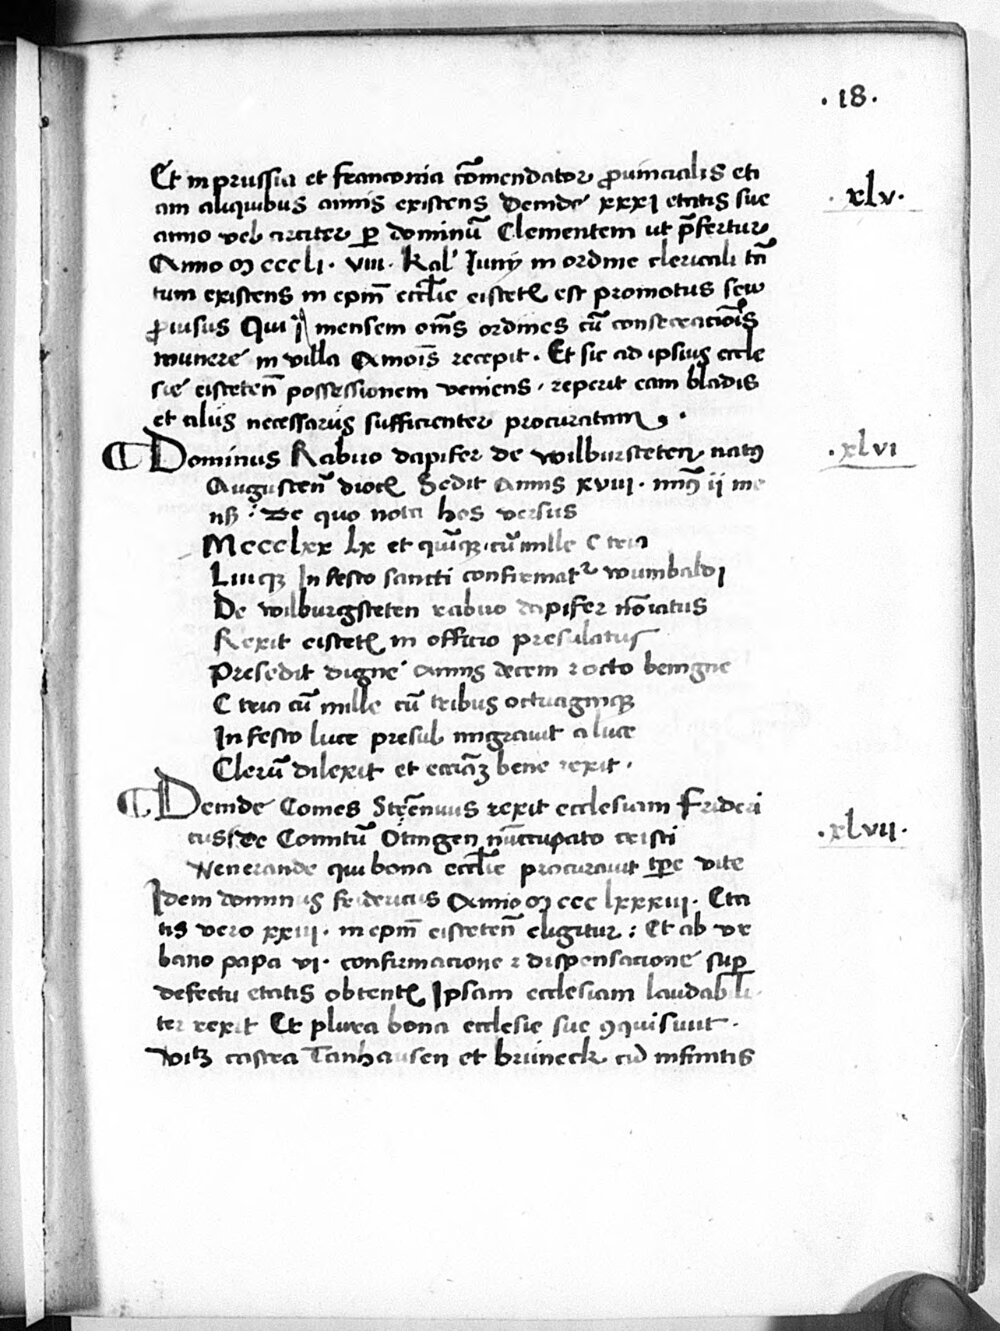 ·18·
Et in prussia et franconia cōmendator ꝓuincialis eti
·xlv·
am aliquibus annis existens Deinde xxxi etatis sue
anno vel circiter ꝑ dominū Clementem ut p̄fertur
Anno ꝏ cccli· viii· kal' Iunÿ in ordine clericali tā
tum existens in epm̄ eccl̄ie eistetꝭ est promotus seu
ꝓuisus Qui i mensem om̄s ordines cū consecracio͞is
munere in villa Amoīs recepit · Et sic ad ipsius eccle
sie eisteteñ possessionem veniens · reperit eam bladis
et alijs necessarijs sufficienter procuratam ·
¶ Dominus Rabno dapifer de wilbursteten natꝰ
·xlvi
Augusteñ diocꝭ Sedit Annis xviii · ii me
nß · De quo nota hos versus
Mccclxx lx et quīqꝫ cū mille C tria
Luiqꝫ In festo sancti confirmatr wunibaldi
De wilburgsteten rabno dapifer nōiatus
Rexit eistetꝭ in officio presulatus
Presedit digne annis decem ⁊ octo benigne
C tria cū mille cū tribus octuagintqꝫ
In festo luce presul migrauit a luce
Clerū dilexit et ecciāꝫ bene rexit ·
¶ Deinde Comes Strēnuus rexit ecclesiam Frideri
cus de Comitū Otingen nūccupato cristi
·xlvii·
Venerande qui bona eccl̄ie procurauit tꝑe vite
Idem dominus fridericus Anno ꝏ ccc lxxxiii· Eta
tis vero xxiii· in epm̄ eisteteñ eligitur : Et ab vr
bano papa vi· confirmacione ⁊ dispensacione sup
defectu etatis obtentꝭ Ipsam ecclesiam laudabili
ter rexit Et plura bona ecclesie sue ꝯquisiuit ·
vitꝫ castra Tanhausen et brüneck cū infinitis